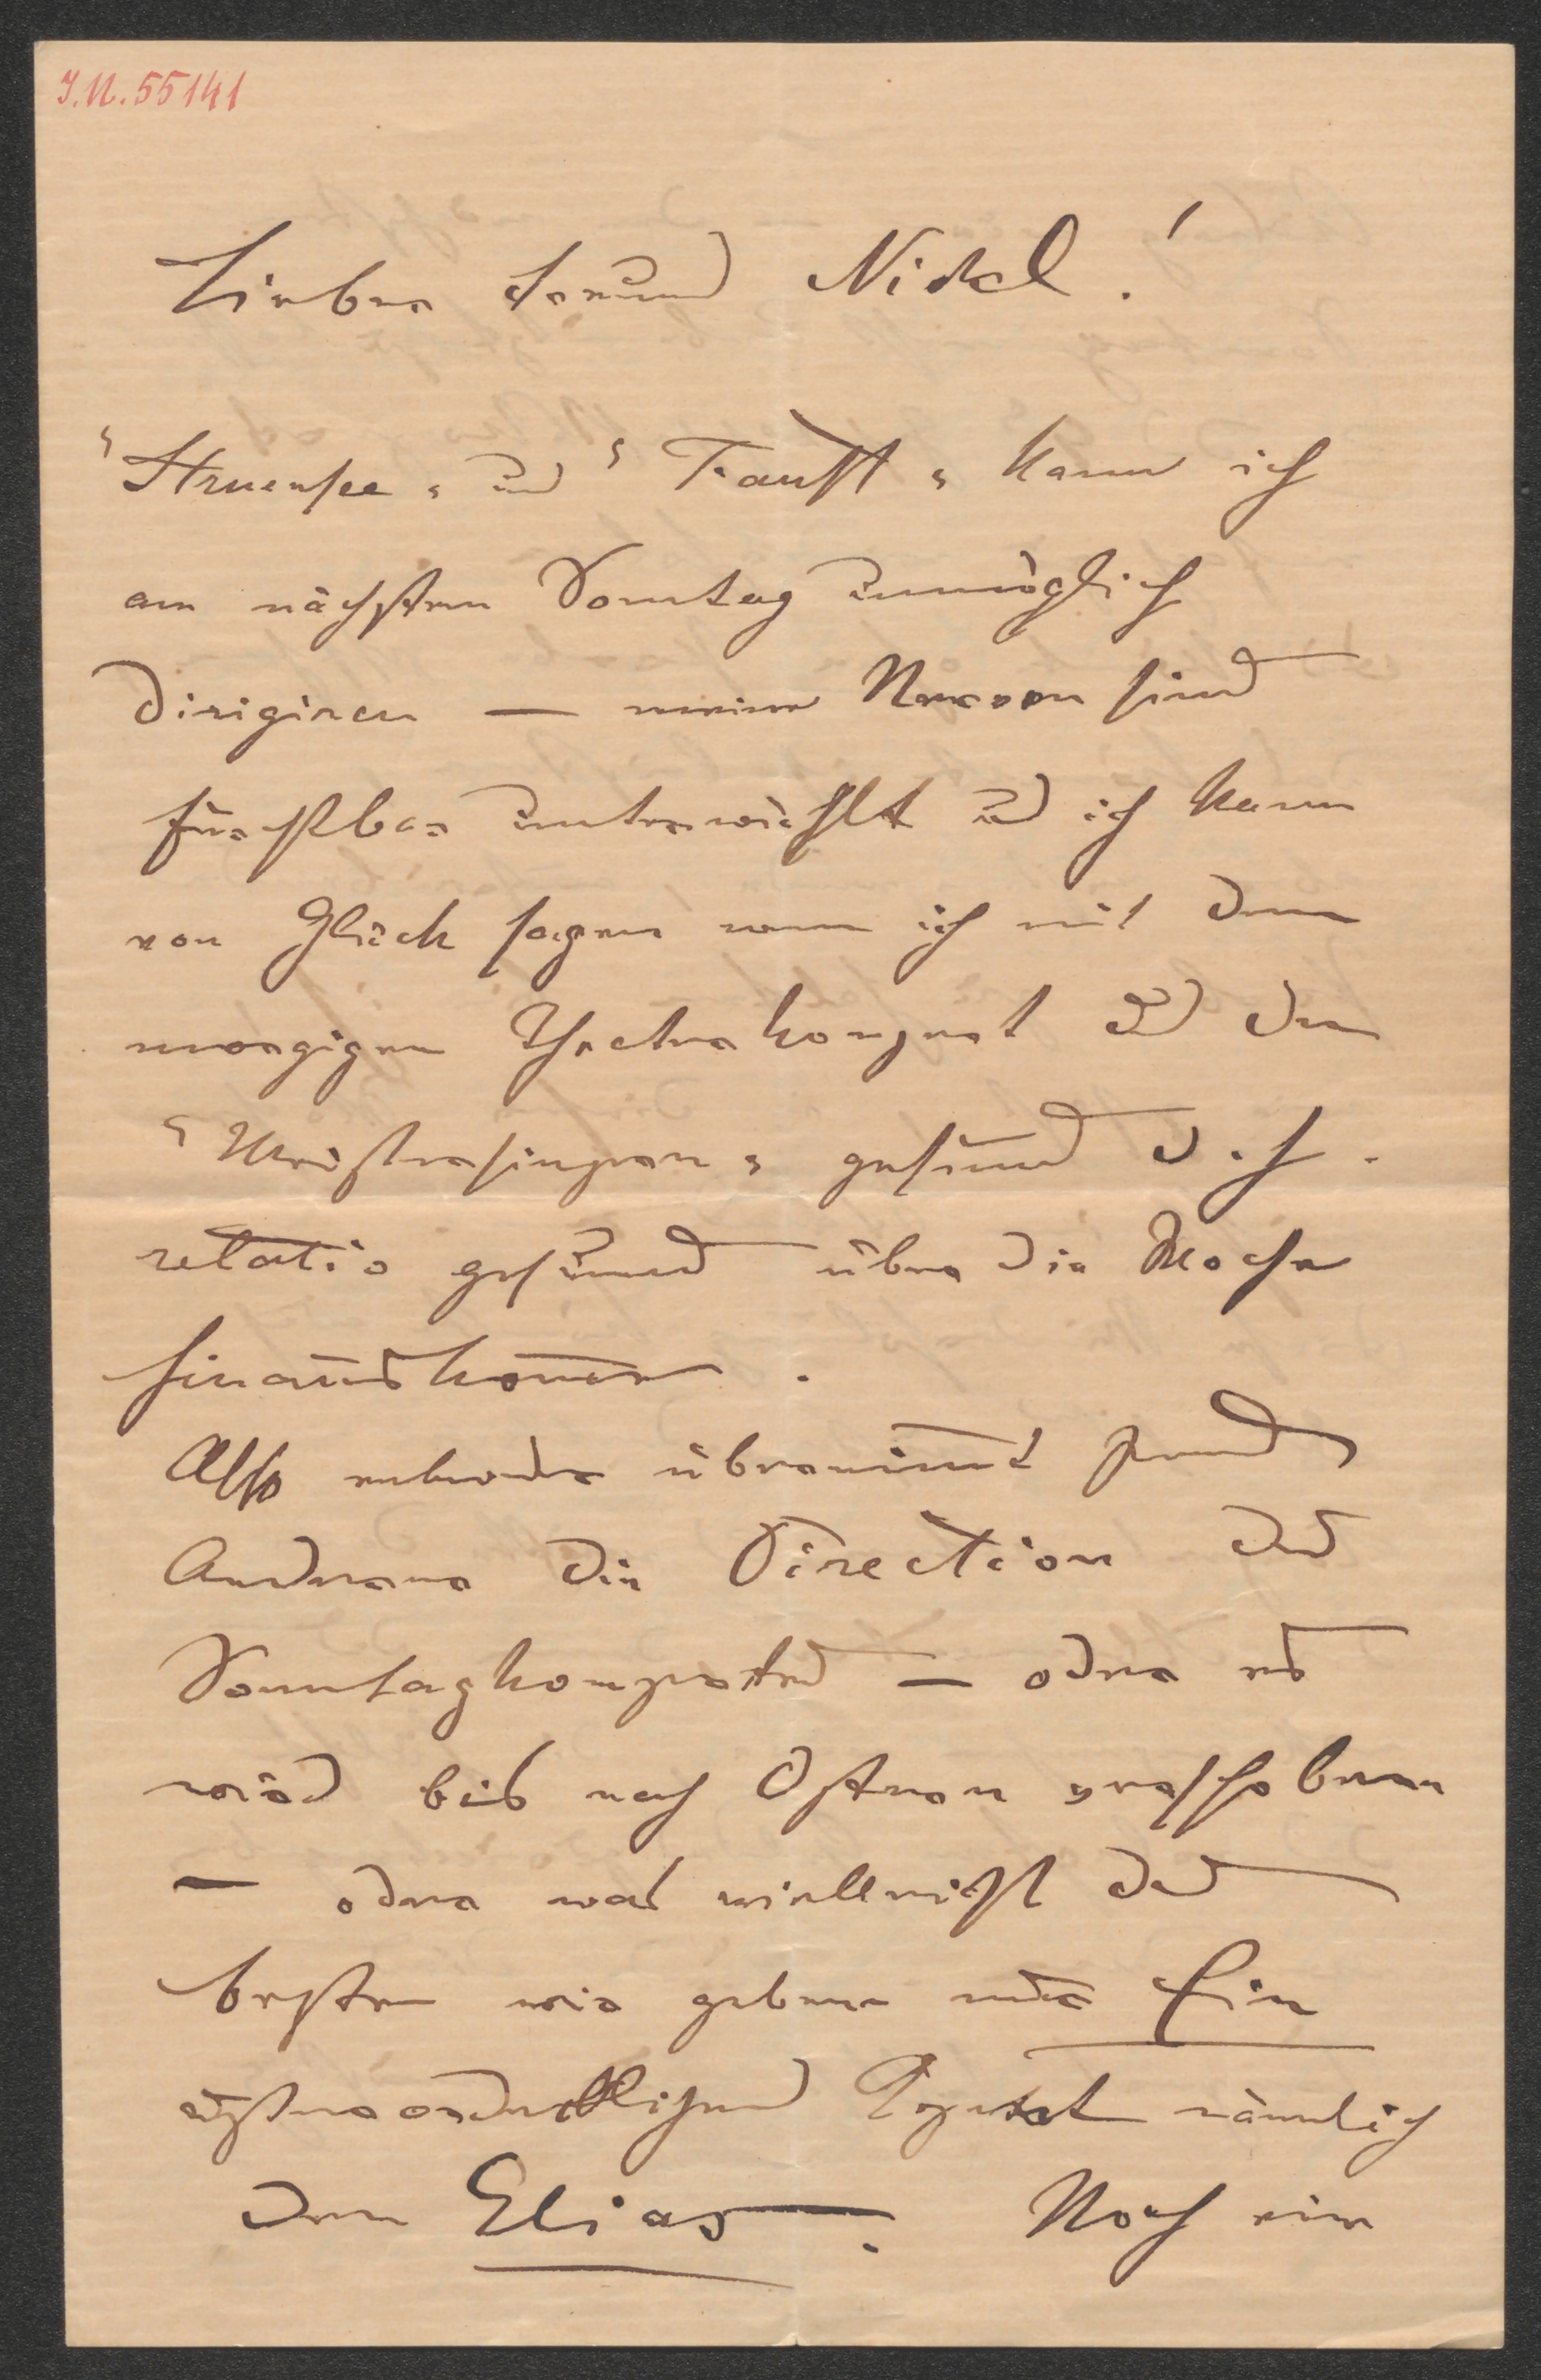 I.N. 55141
Lieber Freund Nickel!
"Struensee" und "Faust" kann ich
am nächsten Sonntag unmöglich
dirigiren — meine Nerven sind
furchtbar zerrüttelt und ich kann
von Glück sagen wenn ich mit dem
morgigen Theaterkonzert und den
"Meistersingern" gesund d. h.
relativ gesund über die Woche
hinauskomme.
Also entweder übernimmt jemand
Anderer die Direction des
Sonntagkonzertes — oder es
wird bis nach Ostern verschoben
— oder was vielleicht das
beste wir geben nur Ein
außerordentliches Konzert nämlich
den Elias. Noch eine